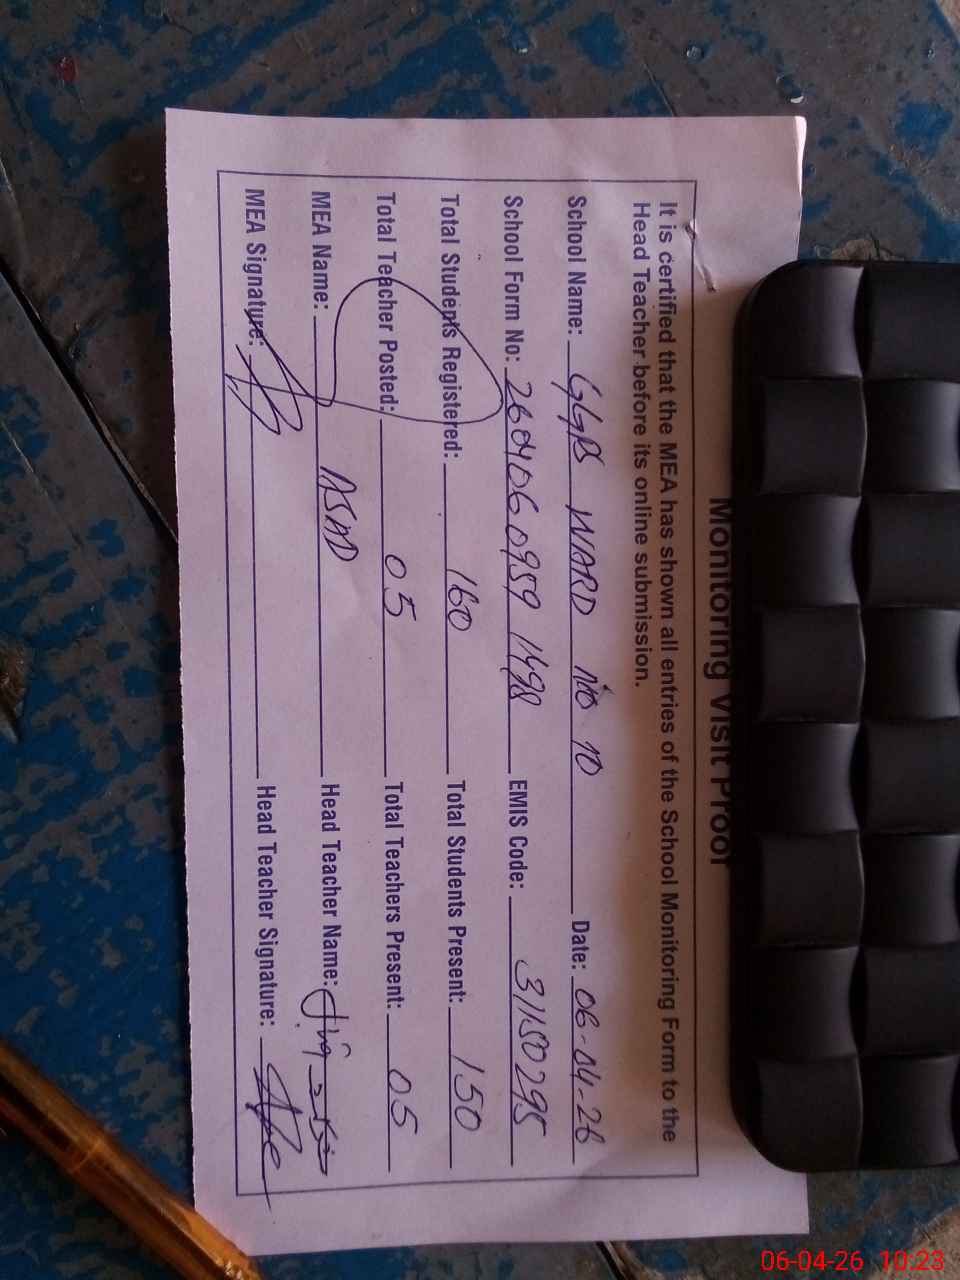 Monitoring Visit Proof
It is certified that the MEA has shown all entries of the School Monitoring Form to the
Head Teacher before its online submission.
School Name: GGPS WARD No 10 Date: 06-04-26
School Form No: 2604060959 1498 EMIS Code: 31150295
Total Students Registered: 160 Total Students Present: 150
Total Teacher Posted: 05 Total Teachers Present: 05
MEA Name: ASAD Head Teacher Name:
MEA Signature: Head Teacher Signature:
06-04-26 10:23